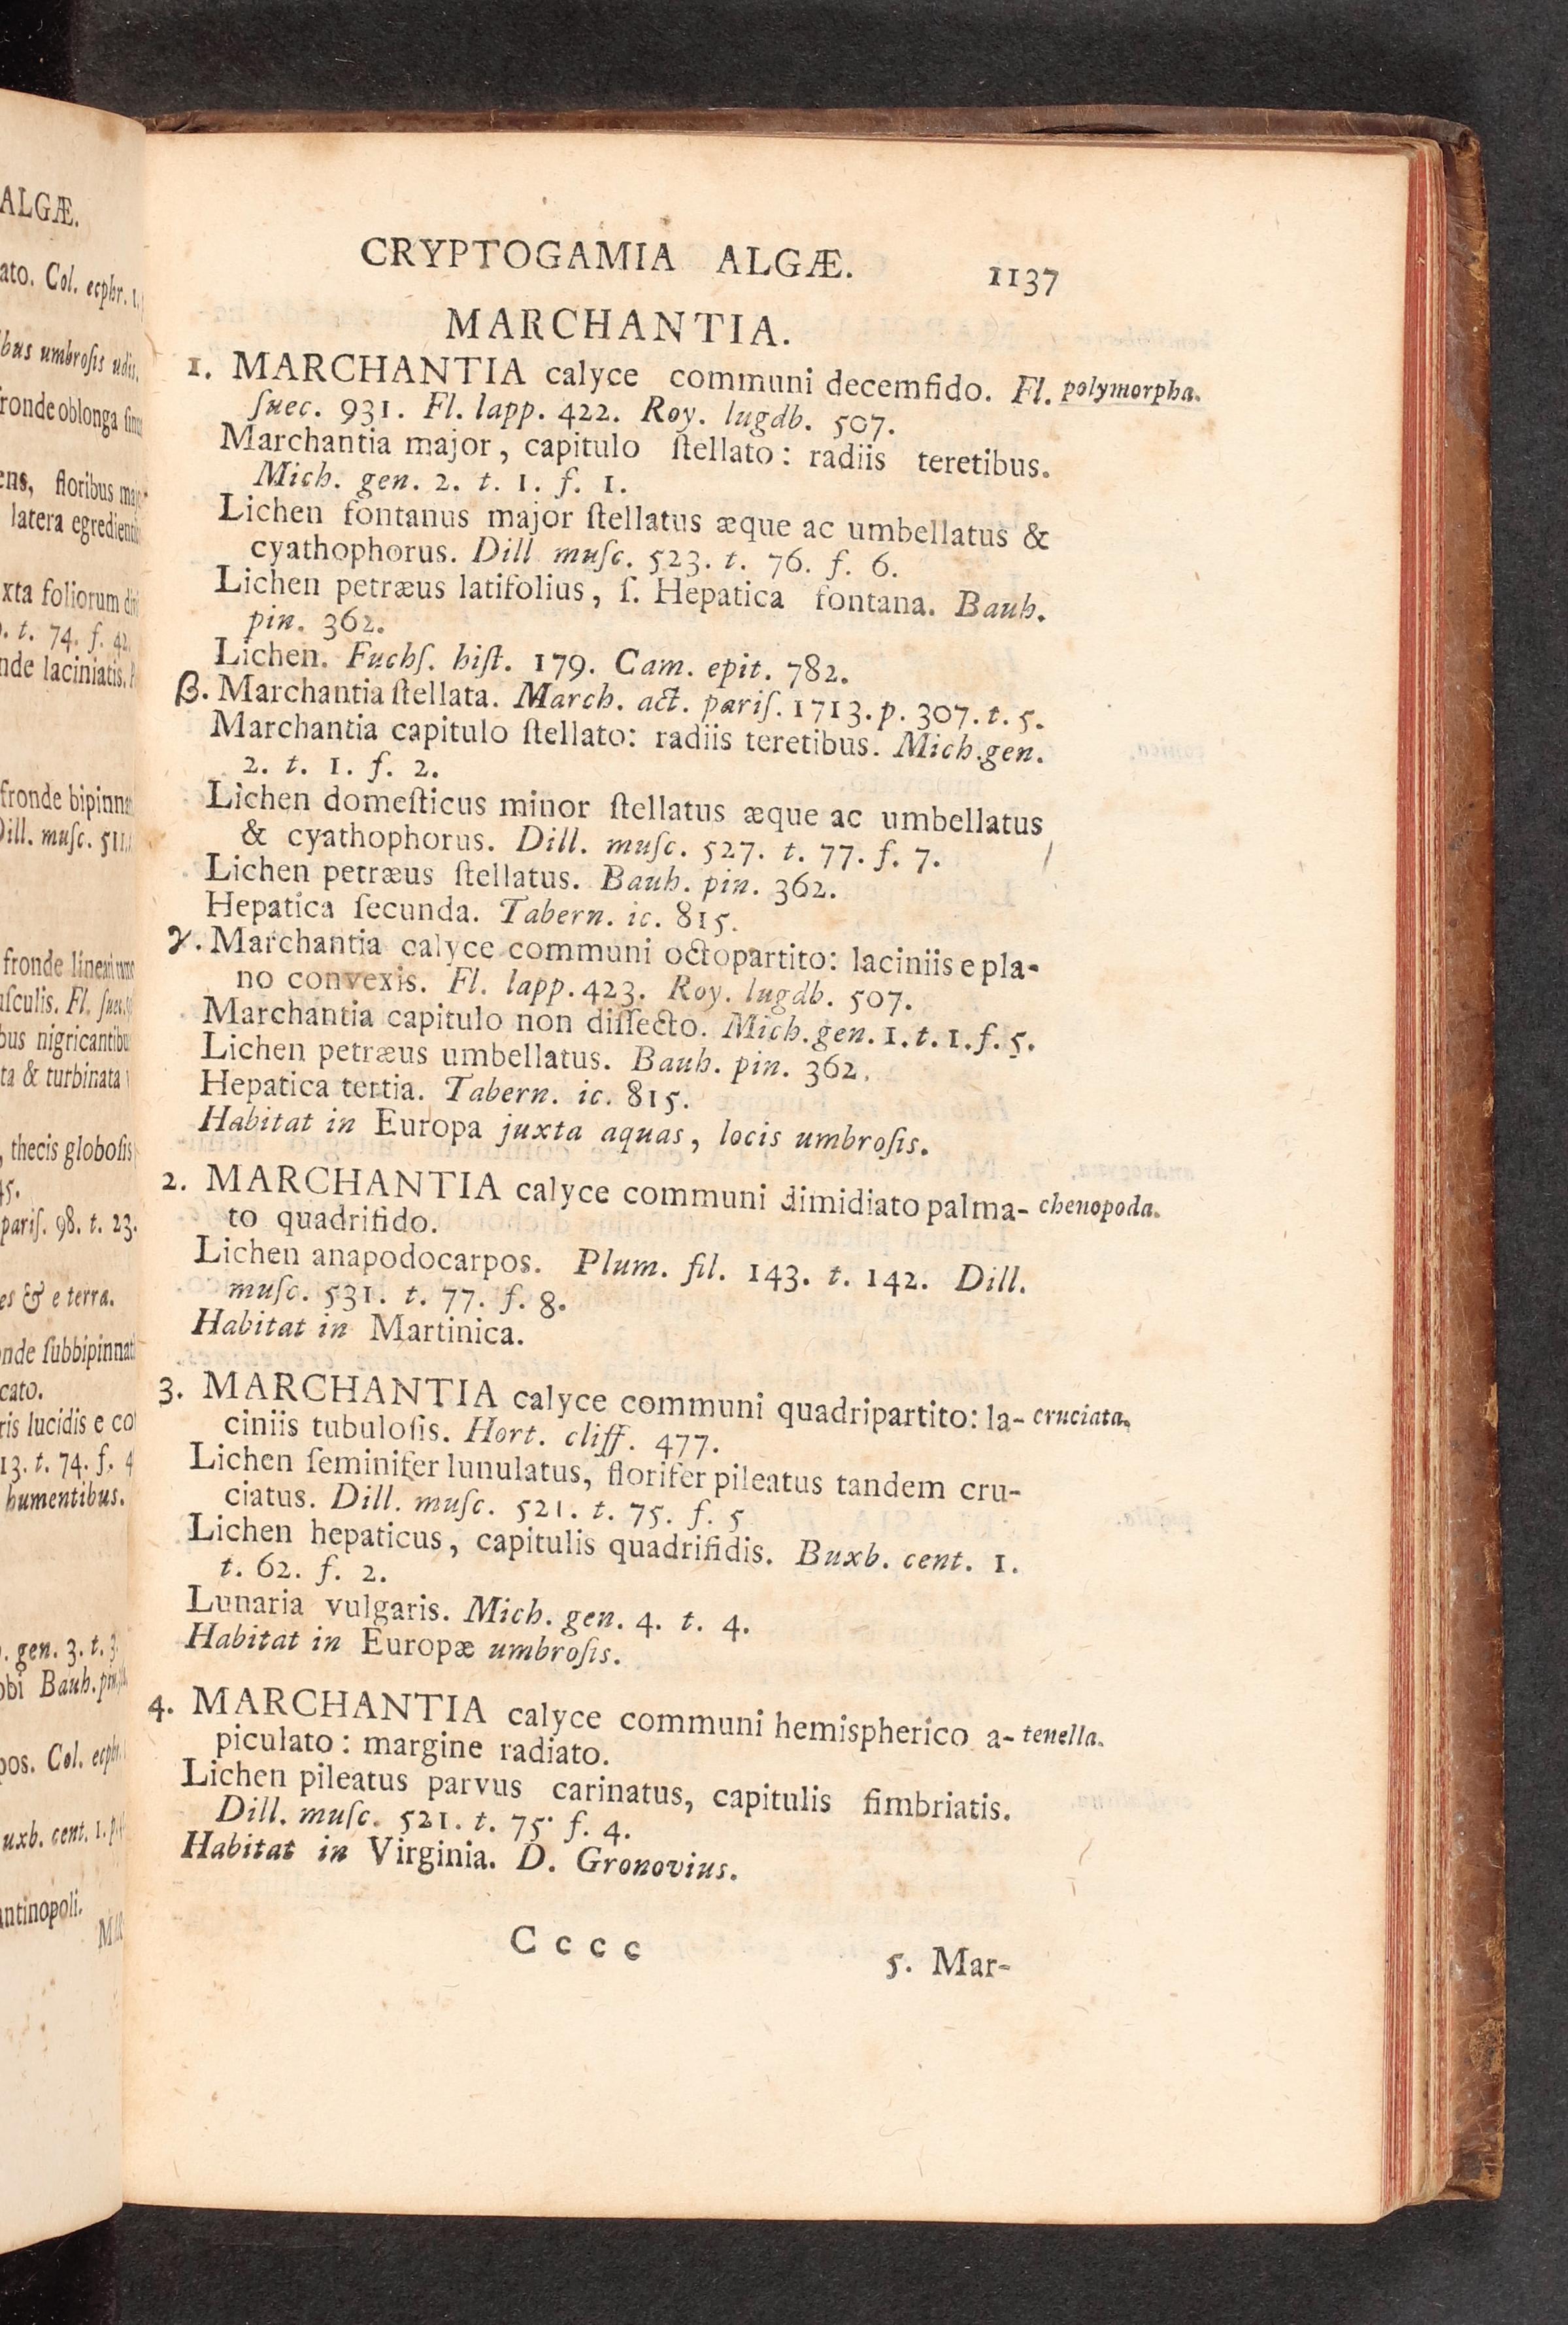 ALGÆ.
ato. Col. ecphr. 1.
bus umbroſis udis.
fronde oblonga
ens, floribus
latera
xta foliorum
t. 74. f. 42.
nde laciniatis.
fronde
Dill. muſc. 511.
fronde
uſculis. Fl.
bus
ta & turbinata
, thecis globoſis
45.
pariſ. 98. t. 23.
es & e terra.
onde
cato.
ris lucidis e
13. t. 74. f. 4
humentibus.
. gen. 3. t. 3.
obi Bauh.
pos. Col.
uxb. cent. 1.
antinopoli.
CRYPTOGAMIA ALGÆ. 1137
MARCHANTIA.
1. MARCHANTIA calyce communi decemfido. Fl. polymorpha.
ſuec. 931. Fl. lapp. 422. Roy. lugdb. 507.
Marchantia major, capitulo ſtellato: radiis teretibus.
Mich. gen. 2. t. 1. f. 1.
Lichen fontanus major ſtellatus æque ac umbellatus &
cyathophorus. Dill muſc. 523. t. 76. f. 6.
Lichen petræus latifolius, ſ. Hepatica fontana. Bauh.
pin. 362.
Lichen. Fuchſ. hiſt. 179. Cam. epit. 782.
β. Marchantia ſtellata. March. act. pariſ. 1713. p. 307. t. 5.
Marchantia capitulo ſtellato: radiis teretibus. Mich. gen.
2. t. 1. f. 2.
Lichen domeſticus minor ſtellatus æque ac umbellatus
& cyathophorus. Dill. muſc. 527. t. 77. f. 7.
Lichen petræus ſtellatus. Bauh. pin. 362.
Hepatica ſecunda. Tabern. ic. 815.
γ. Marchantia calyce communi octopartito: laciniis e pla-
no convexis. Fl. lapp. 423. Roy. lugdb. 507.
Marchantia capitulo non diſſecto. Mich. gen. 1. t. 1. f. 5.
Lichen petræus umbellatus. Bauh. pin. 362.
Hepatica tertia. Tabern. ic. 815.
Habitat in Europa juxta aquas, locis umbroſis.
2. MARCHANTIA calyce communi dimidiato palma- chenopoda.
to quadrifido.
Lichen anapodocarpos. Plum. fil. 143. t. 142. Dill.
muſc. 531. t. 77. f. 8.
Habitat in Martinica.
3. MARCHANTIA calyce communi quadripartito: la- cruciata.
ciniis tubuloſis. Hort. cliff. 477.
Lichen ſeminifer lunulatus, florifer pileatus tandem cru-
ciatus. Dill. muſc. 521. t. 75. f. 5
Lichen hepaticus, capitulis quadrifidis. Buxb. cent. 1.
t. 62. f. 2.
Lunaria vulgaris. Mich. gen. 4. t. 4.
Habitat in Europæ umbroſis.
4. MARCHANTIA calyce communi hemispherico a- tenella.
piculato: margine radiato.
Lichen pileatus parvus carinatus, capitulis fimbriatis.
Dill. muſc. 521. t. 75. f. 4.
Habitat in Virginia. D. Gronovius.
C c c c 5. Mar-